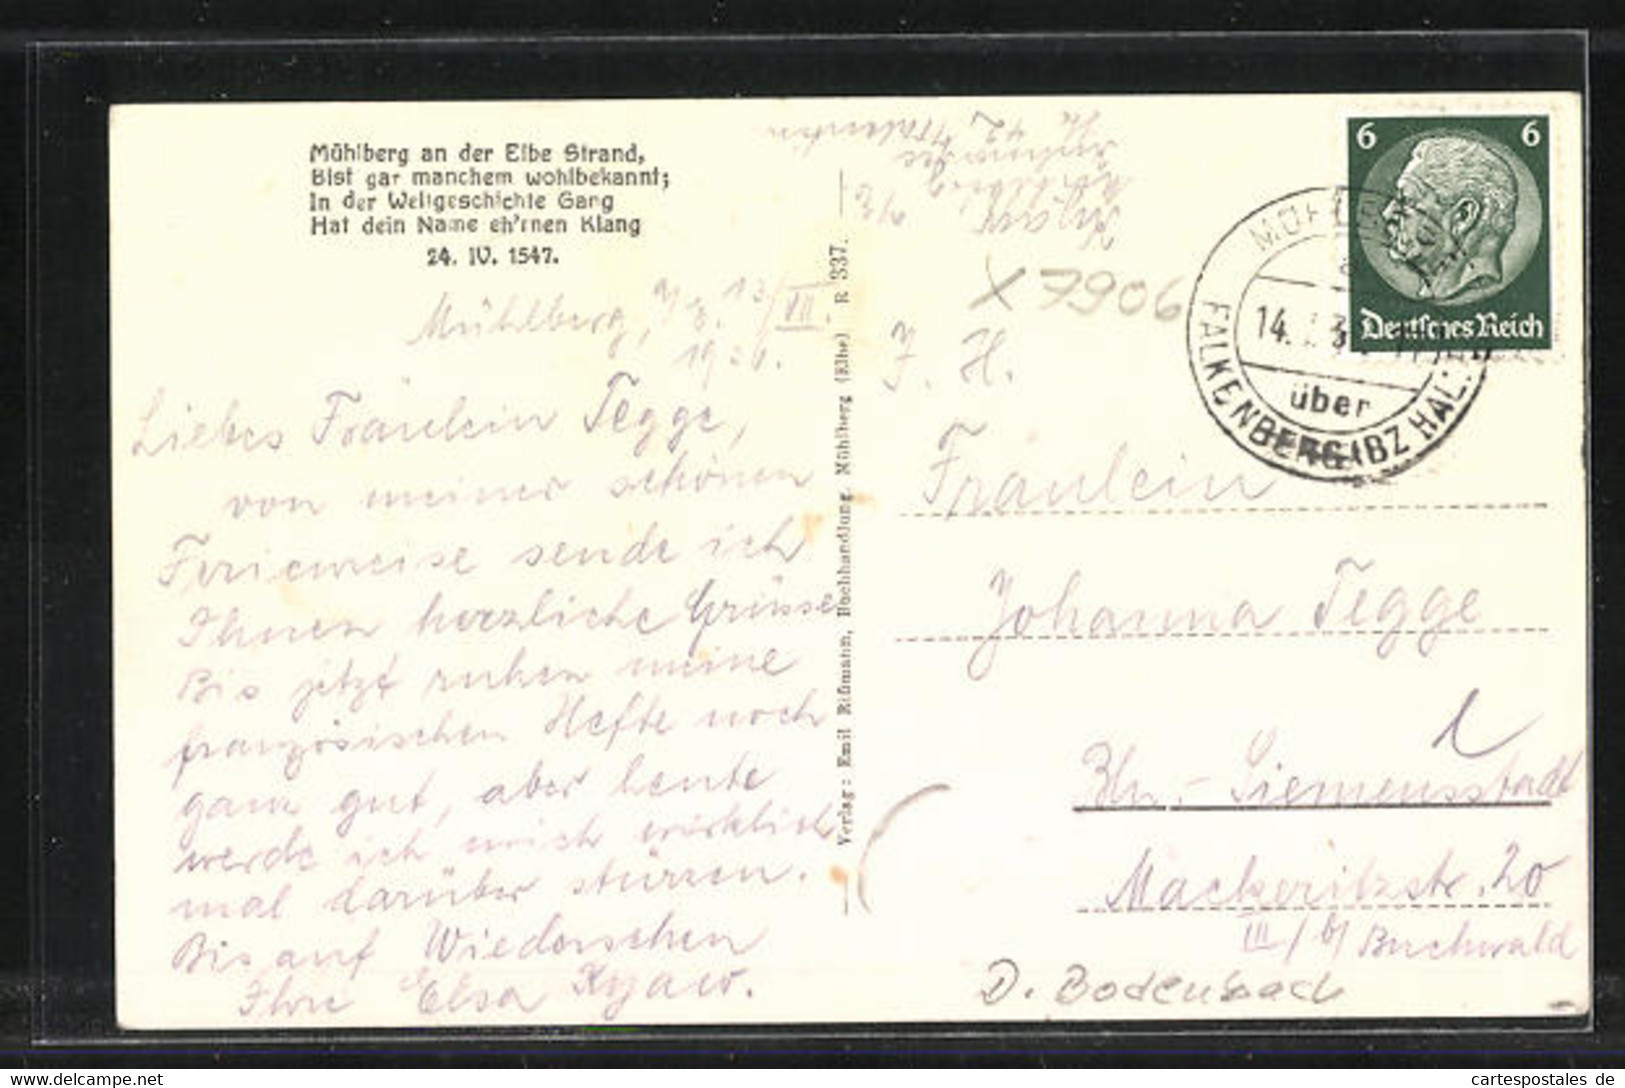 Mühlberg an der Elbe Strand,
Bist gar manchem wohlbekannt;
In der Weltgeschichte Gang
Hat dein Name eh'rnen Klang
24. IV. 1547.
Mühlberg, 13/VII.
Liebes Fräulein Tegge,
von meiner schönen
Ferienreise sende ich
Ihnen herzliche Grüsse
Bis jetzt ruhen meine
französischen Hefte noch
ganz gut, aber heute
werde ich mich wirklich
mal darüber stürzen.
Bis auf Wiedersehen
Ihre Elsa Kyaw.
Verlag: Emil Rißmann, Buchhandlung, Mühlberg (Elbe) R 337.
Kyaw,
Mühlberg
X 7906
6 6
Deutsches Reich
14.
über
FALKENBERG (BZ HALLE)
F. H.
Fräulein
Johanna Tegge
Bln.-Siemensstadt
Mackeritzstr. 20
III / b/ Buchwald
D. Bodenbach
cartespostales de